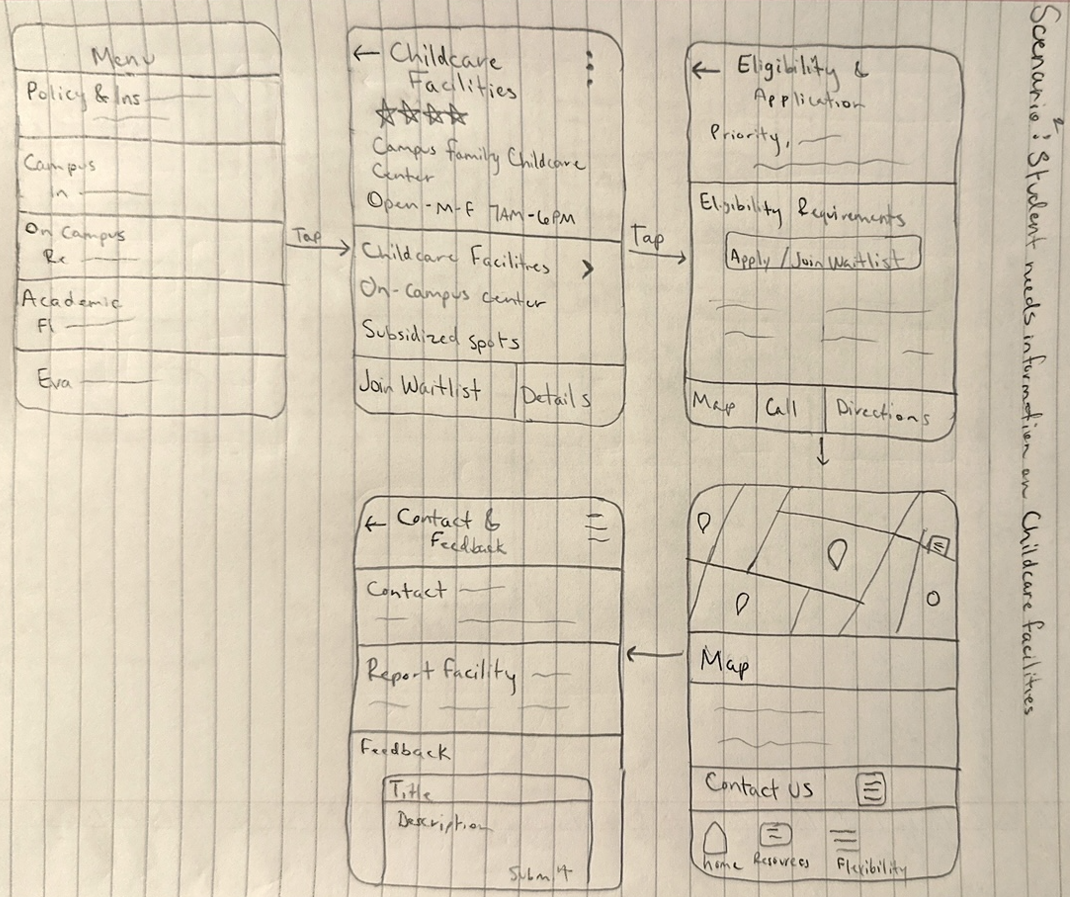 Scenario 2: Student needs information on Childcare facilities
Menu
Policy & Ins
Campus
In
On Campus
Re
Academic
Fl
Eva
Tap
← Childcare
Facilities
Campus family Childcare
Center
Open - M-F 7AM-6PM
Childcare Facilities >
On-campus center
Subsidized spots
Join Waitlist
Details
Tap
← Eligibility &
Application
Priority,
Eligibility Requirements
Apply / Join Waitlist
Map
Call
Directions
Map
Contact Us
home
Resources
Flexibility
← Contact &
Feedback
Contact
Report Facility
Feedback
Title
Description
Submit